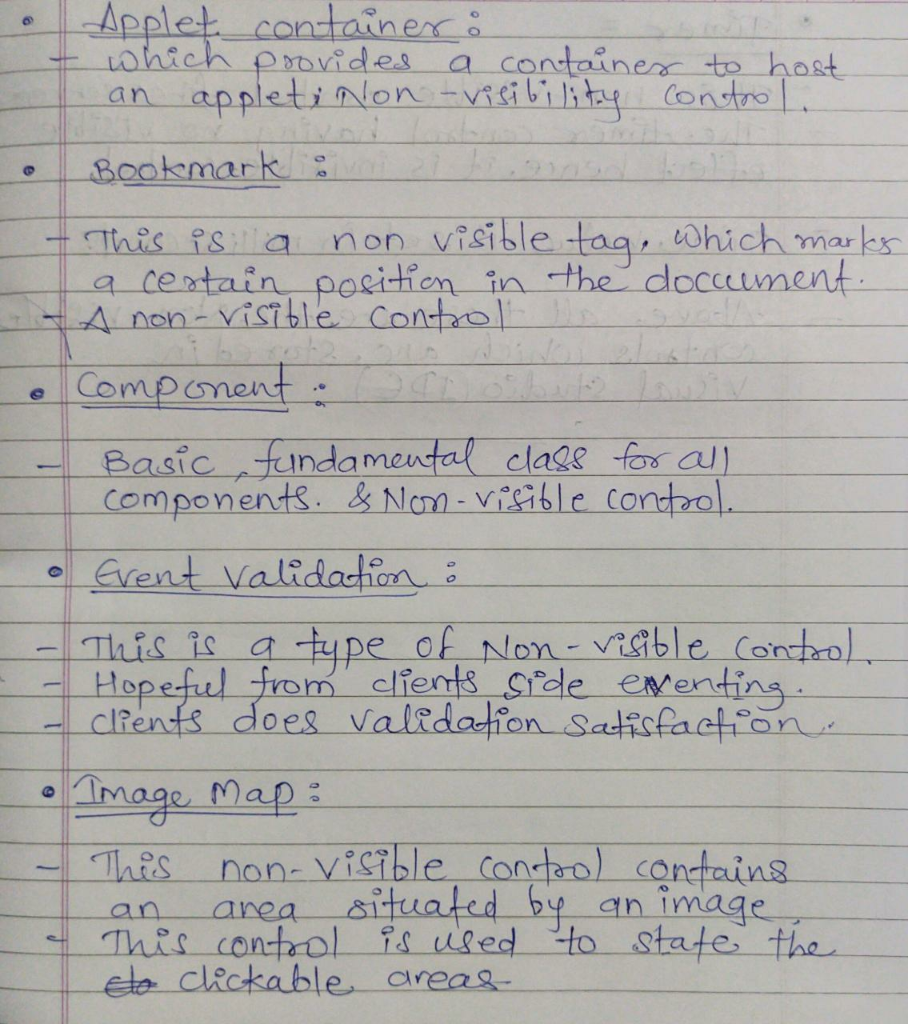 • Applet container :
- which provides a container to host
an applet; Non-visibility control.
• Bookmark :
- This is a non visible tag, which marks
a certain position in the doccument.
- A non-visible control
• Component :
- Basic, fundamental class for all
components. & Non-visible control.
• Event validation :
- This is a type of Non-visible control.
- Hopeful from clients side eventing.
- clients does validation satisfaction.
• Image Map :
- This non-visible control contains
an area situated by an image.
- This control is used to state the
clickable areas-